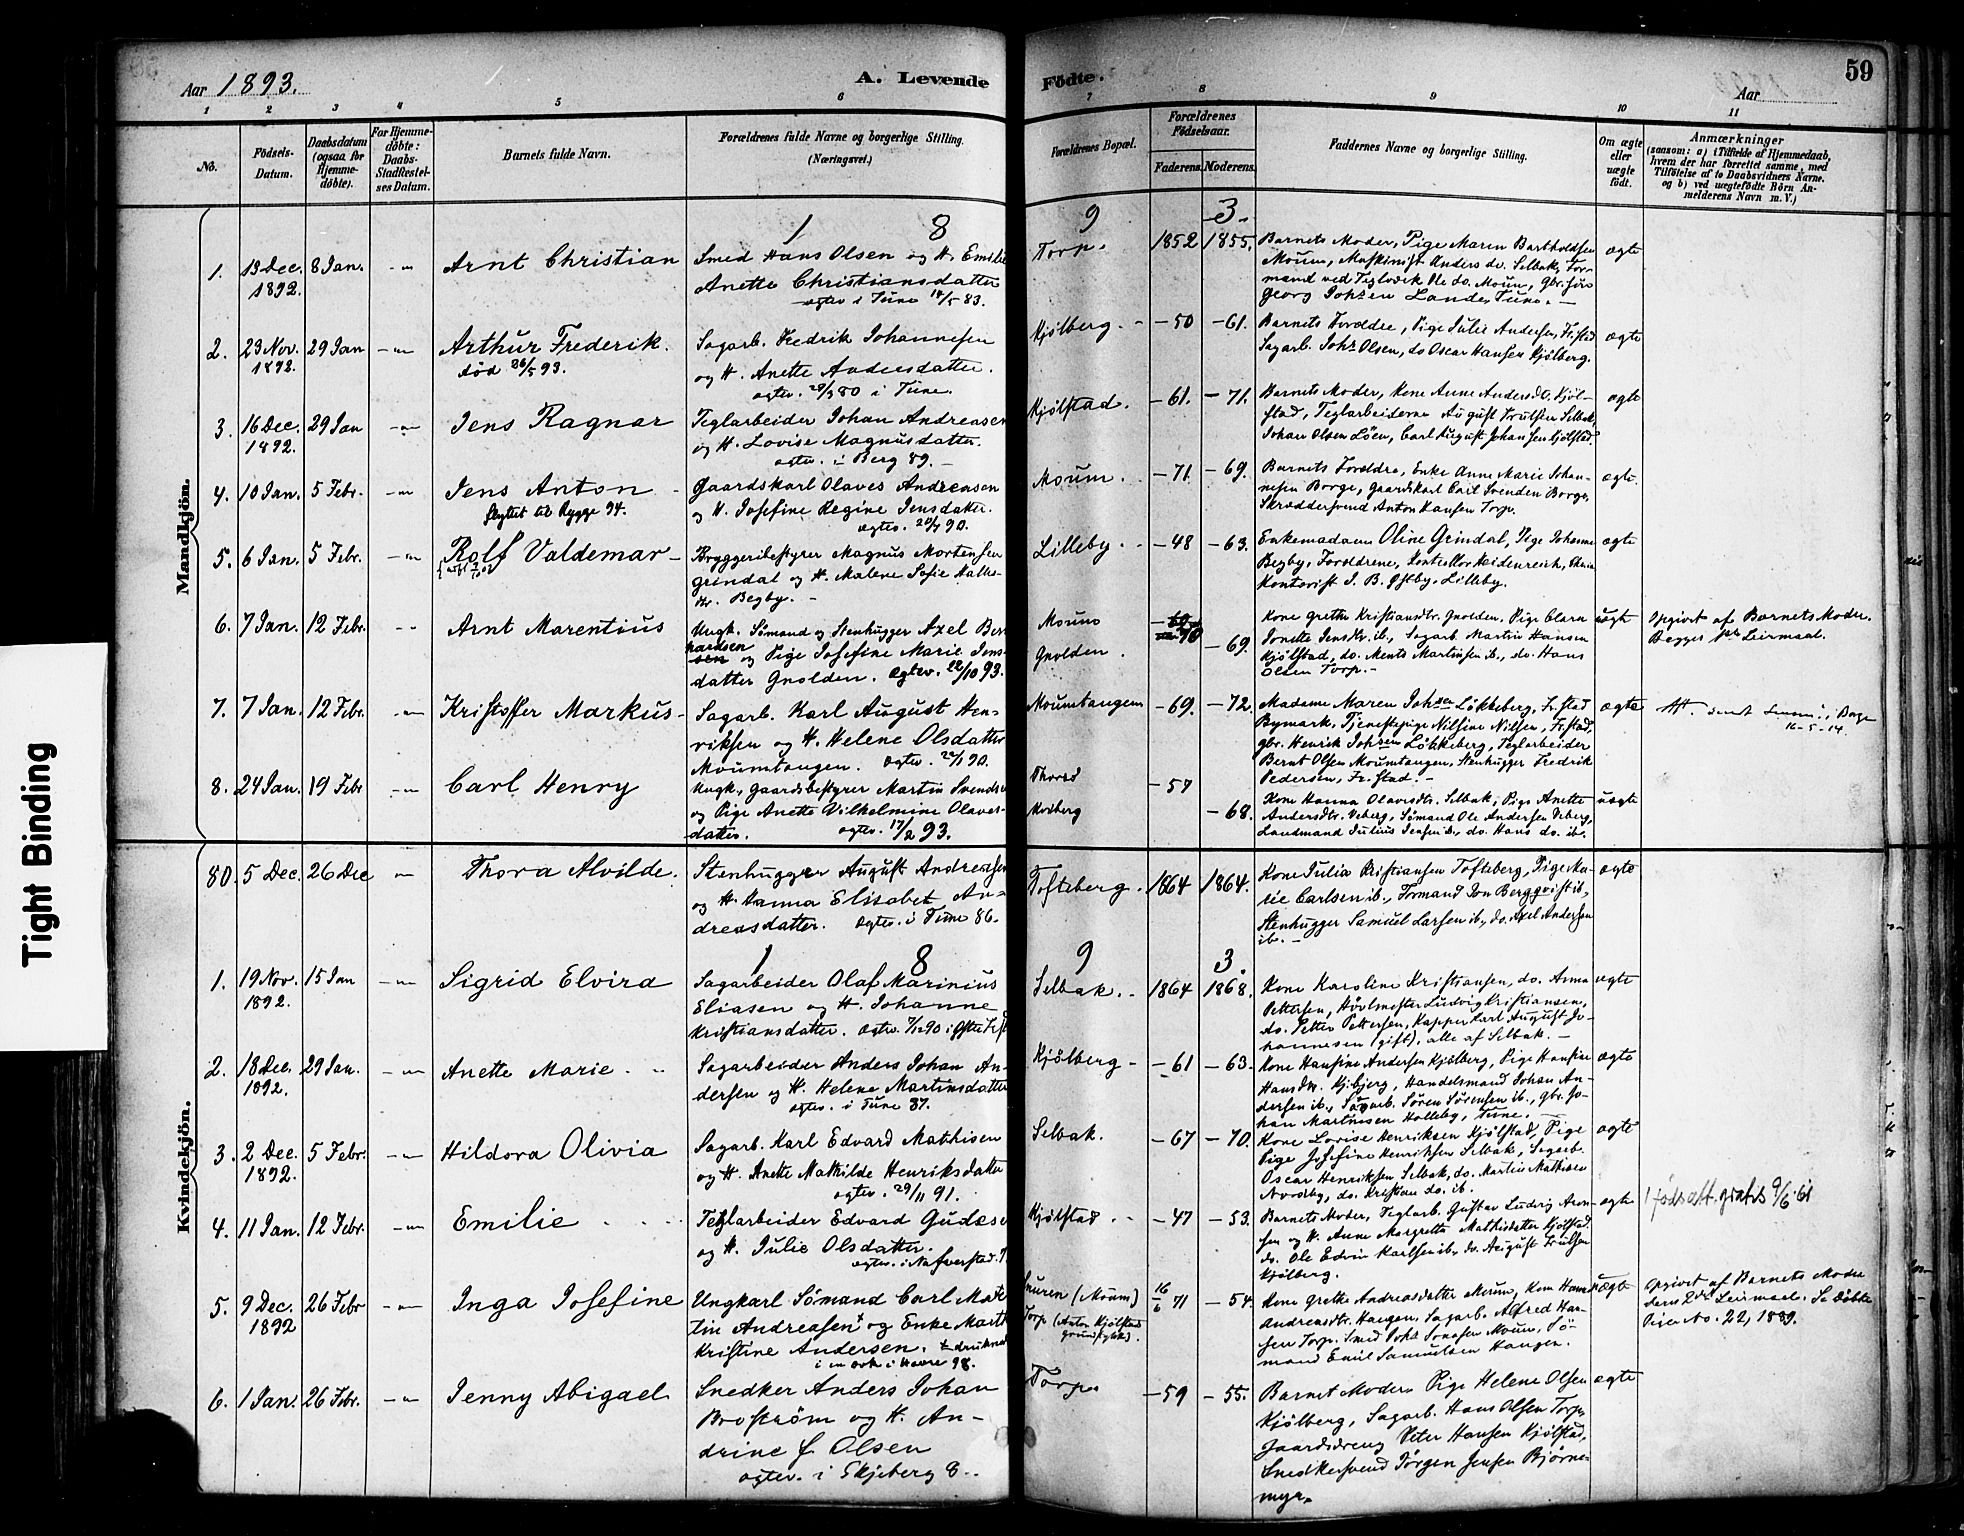 Aar 1893.
A. Levende
Födte.
Aar
59
1 2 3 4 5 6 7 8 9 10 11
No.
Födsels-Datum.
Daabsdatum (ogsaa for Hjemme-döbte).
For Hjemme-döbte: Daabs-Stadfæstel-ses Datum.
Barnets fulde Navn.
Forældrenes fulde Navne og borgerlige Stilling.
(Næringsvei.)
Forældrenes Bopæl.
Forældrenes Födselsaar.
Faderens. Moderens.
Faddernes Navne og borgerlige Stilling.
Om ægte eller uægte födt.
Anmærkninger
(saasom: a) i Tilfælde af Hjemmedaab,
hvem der har forrettet samme, med
Tilföielse af to Daabsvidners Navne.
og b) ved uægtefödte Börn An-
melderens Navn m. V.)
Tight Binding
Mandkjön.
1 8 9 3.
1. 13 Dec. 1892. 8 Jan. Arnt Christian
Smed Hans Olsen og H. Emilie
Anette Christiansdatter
ægtev. i Tune 14/5 83.
Torp. 1852 1855.
Barnets Moder, Pige Maren Bartholdsen
Moum, Maskinist Anders do. Selbak, For-
mand ved Teglværk Ole do. Moum, Gbr. søn
Georg Johsen Lande, Tune.
ægte
2. 23 Nov. 1892. 29 Jan Arthur Frederik.
død 26/5 93.
Sagarb. Fredrik Johannesen
og H. Anette Andersdatter.
ægtev. 29/3 80 i Tune.
Kjølberg. - 50 - 61.
Barnets Forældre, Pige Julie Andersen, Fr.stad
Sagarb. Johs Olsen, do Oscar Hansen Kjølberg.
ægte
3. 16 Dec. 1892. 29 Jan Jens Ragnar
Teglarbeider Johan Andreasen
og H. Lovise Magnusdatter.
ægtev. i Berg 89.
Kjølstad. - 61. - 71.
Barnets Moder, Kone Anne Andersdtr. Kjøl-
stad, Teglarbeiderne August Trulsen Selbak,
Johan Olsen Løen, Carl August Johansen Kjølstad.
ægte
4. 10 Jan. 5 Febr. Jens Anton
flyttet til Rygge 94.
Gaardskarl Olaves Andreasen
og H. Josefine Regine Jensdatter.
Moum. - 71 - 69.
Barnets Forældre, Enke Anne Marie Johan-
nesen Borge, Gaardskarl Carl Svendsen Borge,
Skrædersvend Anton Hansen Torp.
ægte.
5. 6 Jan. 5 Febr. Rolf Valdemar
Bryggeribestyrer Magnus Mortensen
Grindal og H. Malene Sofie
Begby.
Lilleby. - 48 - 63.
Enkemadam Oline Grindal, Pige Johanne
Begby, Forældrene, Kontrollør Heidenreich,
Kontorist J. B. Lilleby.
ægte
6. 7 Jan. 12 Febr. Arnt Marentius
Ungk. Sømand og Stenhugger Axel Bern
hardsen og Pige Josefine Marie Jens-
datter Gnolden. Ægtev. 22/10 93.
Moum
Gnolden. 70 - 69.
Kone Grethe Kristiansdtr. Gnolden, Pige Clara
Jonette Jensdtr. ib., Sagarb Martin Hansen
Kjølstad, do. Ments Martinsen ib., do. Hans
Olsen Torp.
uægt
Opgivet af Barnets Moder.
Begges 1ste Leiermaal.
7. 7 Jan. 12 Febr. Kristoffer Markus
Sagarb. Karl August Hen-
riksen og H. Helene Olsdatter
Moumtangen. ægtev. 90.
Moumtangen - 69. - 72.
Madame Maren Johsen Løkkeberg, Fr.stad
Bymark, Tjenestepige Nilsine Nilsen, Fr.stad,
gbr. Henrik Johsen Løkkeberg, Teglarbeider
Bernt Olsen Moumtangen, Stenhugger Fredrik
Pedersen, Fr.stad.
ægte
16-5-14.
8. 24 Jan. 19 Febr Carl Henry
Ungk, Gaardsbestyrer Martin Svendsen
og Pige Anette Vilhelmine Olaves-
datter. ægtev. 17/2 93.
Thorsø
- 57 - 68.
Kone Hanna Olavesdtr. Selbak, Pige Anette
Andersdtr. Veberg, Sømand Ole Andersen Veberg,
Landmand Julius Jensen ib., do. Hans do. ib.
uægte
80. 5 Dec. 26 Dec Thora Alvilde.
Stenhugger August Andreasen
og H. Hanna Elisabet An-
dreasdatter. Ægtev. i Tune 86.
Tofteberg. 1864 1864.
Kone Julia Kristiansen Tofteberg, Pige
Carlsen ib., Formand Jon Bergqvist ib.,
Stenhugger Samuel Larsen ib., do. Axel Andersen
ib.
ægte
Kvindekjön.
1 8 9 3.
1. 19 Nov. 1892. 15 Jan Sigrid Elvira
Sagarbeider Olaf Marinius
Eliasen og H. Johanne
Kristiansdatter.
Selbak. 1864 1868.
Kone Karoline Kristiansen, do. Anna
Pettersen, Høvlmester Ludvig Kristiansen,
do. Petter Pettersen, Kapper Karl August Jo-
hannesen (gift), alle af Selbak.
ægte
2. 18 Dec. 1892. 29 Jan. Anette Marie
Sagarbeider Anders Johan An-
dersen og H. Helene Martinsdatter
ægtev. i Tune 87.
Kjølberg - 61 - 63.
Kone Hansine Andersen Kjølberg, Pige Hansine
Hansdtr. Kjølberg, Handelsmand Johan An-
dersen ib., Sagarb. Søren Sørensen ib., gbr. Jo-
han Martinsen Holleby, Tune.
ægte
3. 2 Dec. 1892. 5 Febr. Hildora Olivia
Sagarb. Karl Edvard Mathisen
og H. Anette Mathilde Henriksdatter
ægtev. 29/11 91.
Selbak. - 67 - 70.
Kone Lovise Henriksen Kjølstad, Pige
Pige Josefine Henriksen Selbak, Sagarb.
Oscar Henriksen Selbak, do. Martin Mathisen
Nordby, do. Kristian do. ib.
ægte
4. 11 Jan. 12 Febr. Emilie
Teglarbeider Edvard Gudesen
og H. Julie Olsdatter.
ægtev. i Nafverstad.
Kjølstad - 47 - 53.
Barnets Moder, Teglarb. Gustav Ludvig Aron-
sen og H. Anne Margrethe Mathisdatter Kjølstad.
do. Ole Edvin Karlsen ib., do. August Trulsen
Kjølberg.
ægte
1 fødsatt. gratis 9/6-61
5. 9 Dec. 1892 26 Febr Inga Josefine
Ungkarl Sømand Carl Mar-
tin Andreasen og Enke Marthe
Kristine Andersen. druknet
i Havre 98.
(Moum)
Torp (Anton Kjølstads
grund).
16/6 71 - 54.
Kone Grethe Andreasdatter Moum, Kone Hanne
Andreasdtr. Haugen, Sagarb. Alfred Han-
sen Torp, Smed Johs Jonasen Moum, Sø-
mand Emil Samuelsen Haugen.
uægte
Opgivet af Barnets Moder
dens 2det Leiermaal. Se Døbte
Piger No. 22, 1889.
6. 1 Jan. 26 Febr. Jenny Abigael
Snedker Anders Johan
Broström og H. An-
drine f. Olsen
ægtev. i Skjeberg 8..
Torp - 59 - 55.
Barnet Moder, Pige Helene Olsen
Kjølberg, Sagarb. Hans Olsen Torp,
Gaardsdreng Peter Hansen Kjølstad,
Snedkersvend Jørgen Jensen Bjørne-
myr.
ægte